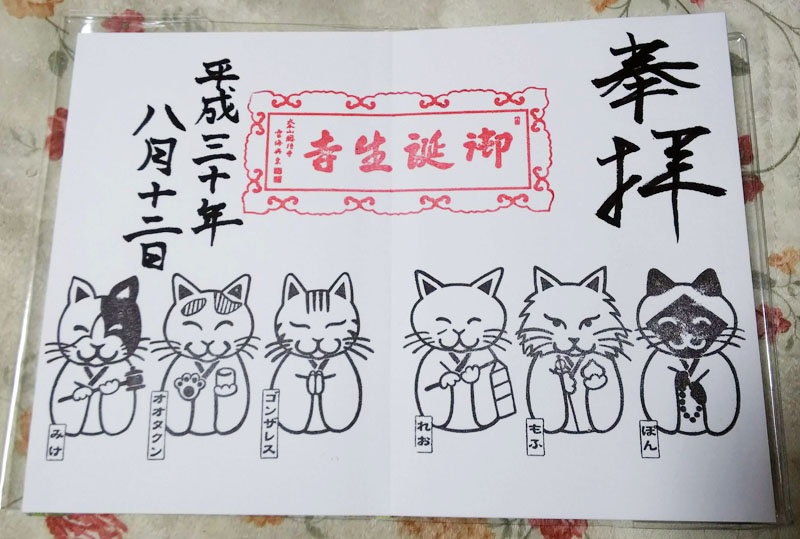 奉拝
御誕生寺
平成三十年
八月十二日
みけ
オオタクン
ゴンザレス
れお
もふ
ぽん